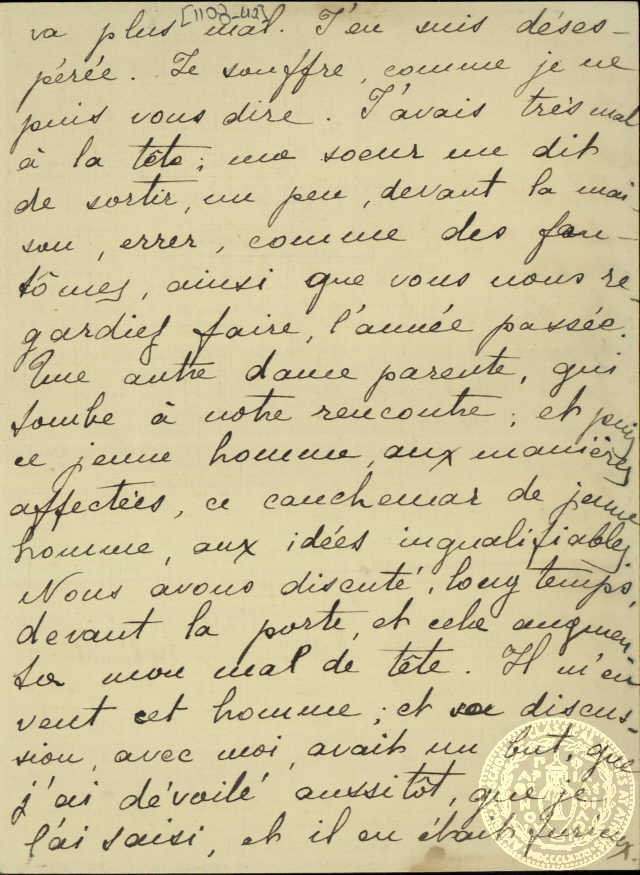 [1103-42]
va plus mal. J'en suis déses-
pérée. Je souffre, comme je ne
puis vous dire. J'avais très mal
à la tête; ma soeur me dit
de sortir, un peu, devant la mai-
son, errer, comme des fan-
tômes, ainsi que vous nous re-
gardiez faire, l'année passée.
Une autre dame parente, qui
tombe à notre rencontre; et puis
ce jeune homme, aux manières
affectées, ce cauchemar de jeune
homme, aux idées inqualifiables,
Nous avons discuté, longtemps,
devant la porte, et cela augmen-
ta mon mal de tête. Il m'en
veut cet homme; et sa discus-
sion, avec moi, avait un but, que
j'ai dévoilé aussitôt, que je
l'ai saisi, et il en était furieux.